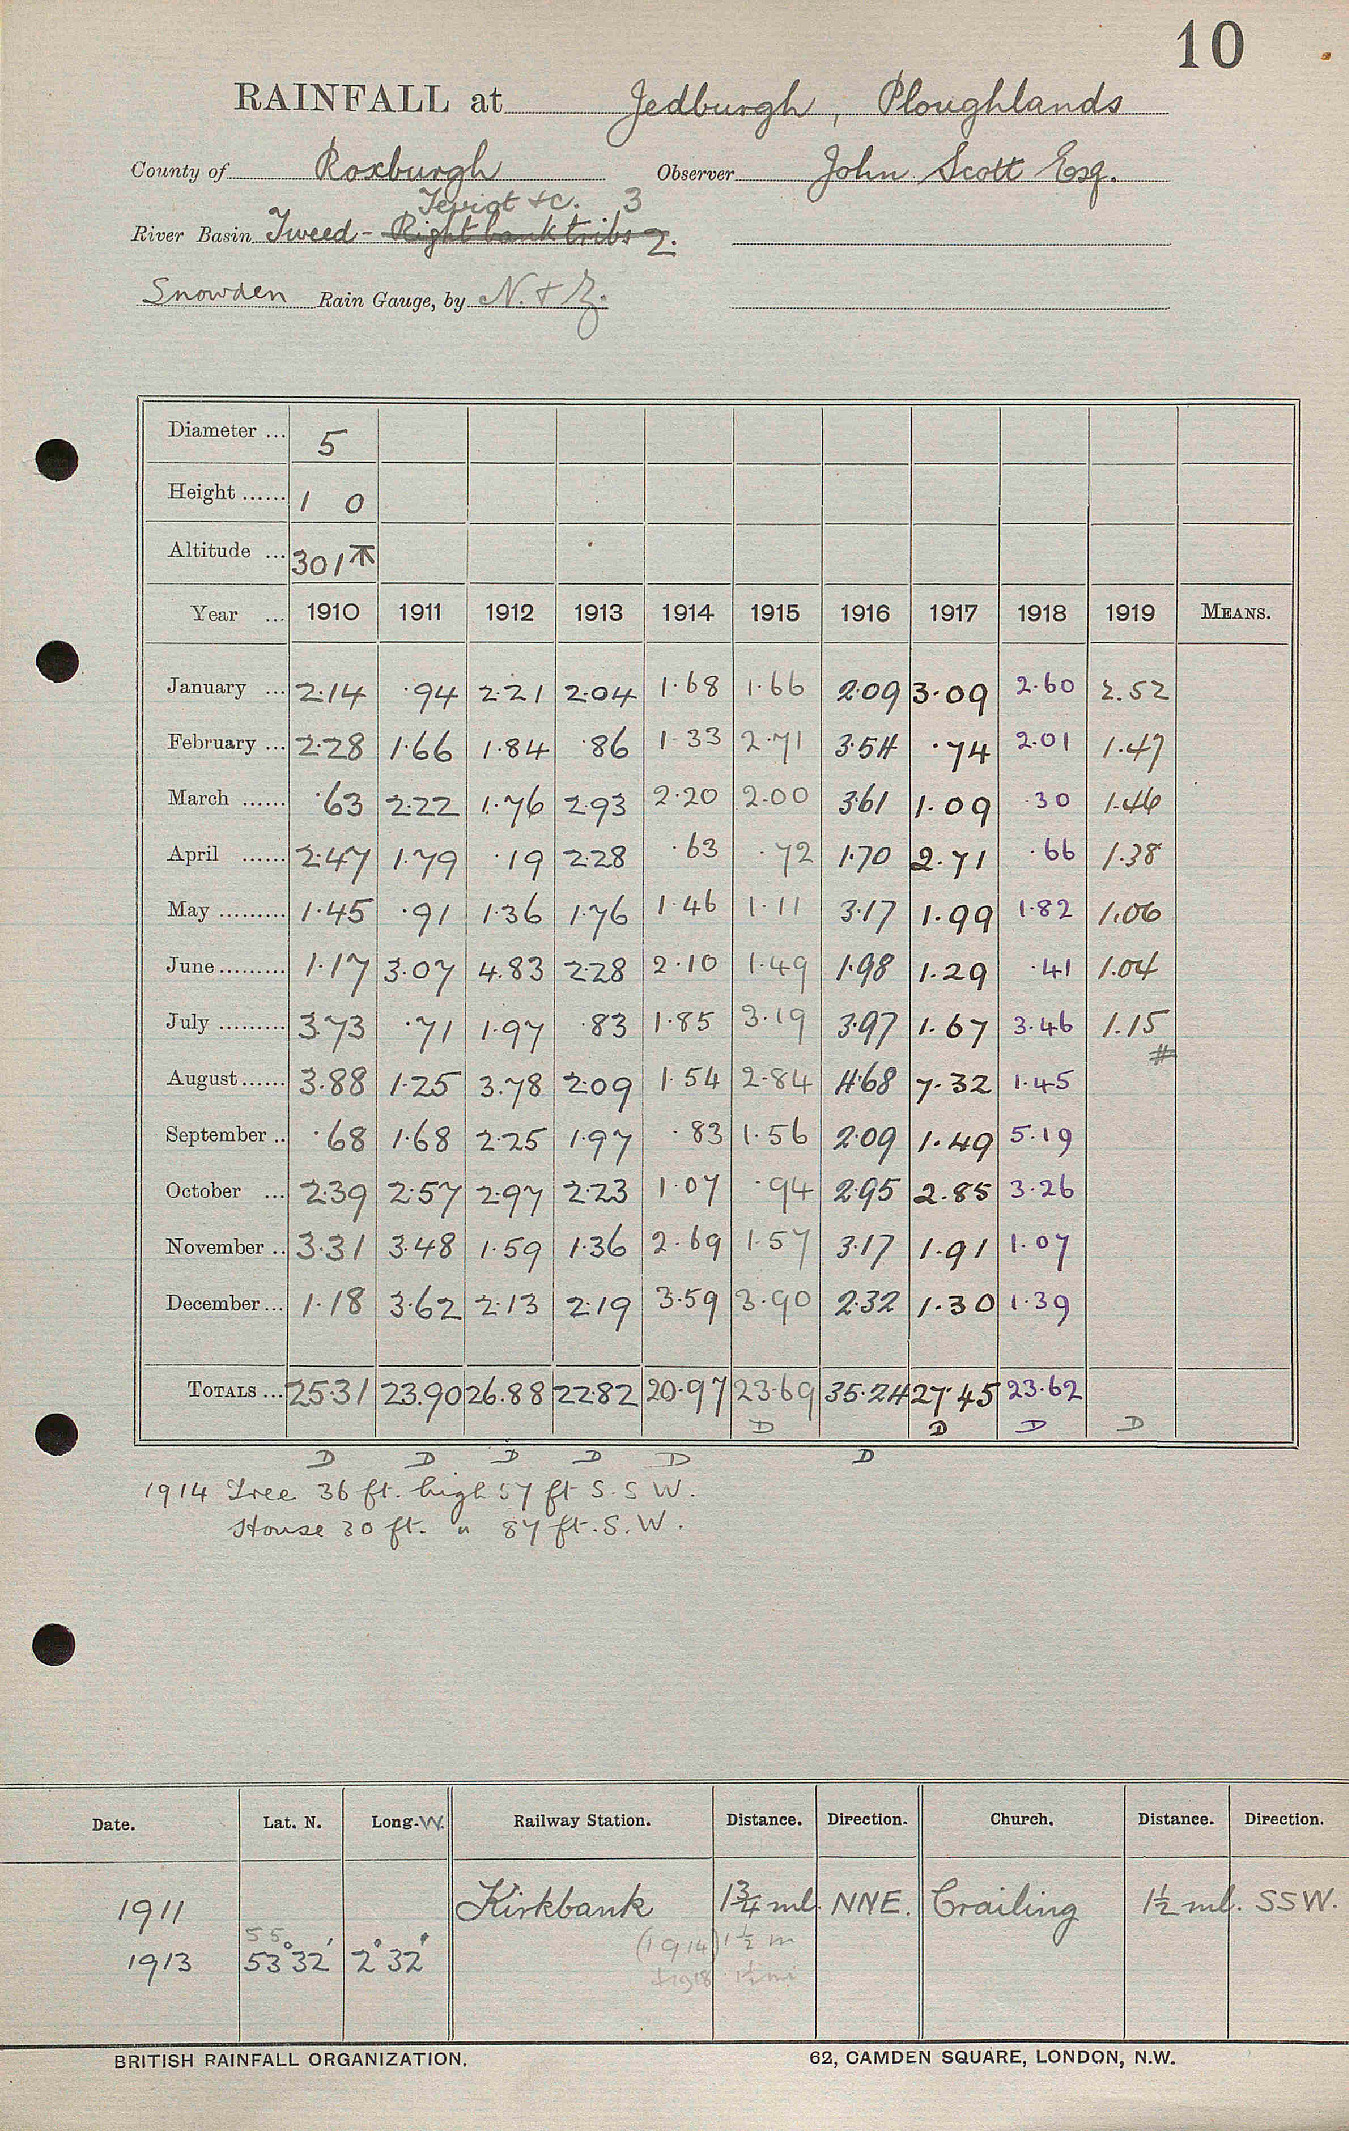 10
RAINFALL at Jedburgh, Ploughlands
County of Roxburgh Observer John Scott Esq.
Teviot &c. 3
River Basin Tweed - Right bank tribs 2.
Snowden Rain Gauge, by N. & Z.
Diameter ... 5
Height ...... 1 0
Altitude ... 301
Year ... 1910 1911 1912 1913 1914 1915 1916 1917 1918 1919 MEANS.
January ... 2.14 .94 2.21 2.04 1.68 1.66 2.09 3.09 2.60 2.52
February ... 2.28 1.66 1.84 .86 1.33 2.71 3.54 .74 2.01 1.47
March ...... .63 2.22 1.76 2.93 2.20 2.00 3.61 1.09 .30 1.46
April ...... 2.47 1.79 .19 2.28 .63 .72 1.70 2.71 .66 1.38
May ......... 1.45 .91 1.36 1.76 1.46 1.11 3.17 1.99 1.82 1.06
June ......... 1.17 3.07 4.83 2.28 2.10 1.49 1.98 1.29 .41 1.04
July ......... 3.73 .71 1.97 .83 1.85 3.19 3.97 1.67 3.46 1.15
#
August ...... 3.88 1.25 3.78 2.09 1.54 2.84 4.68 7.32 1.45
September .. .68 1.68 2.25 1.97 .83 1.56 2.09 1.49 5.19
October ... 2.39 2.57 2.97 2.23 1.07 .94 2.95 2.85 3.26
November .. 3.31 3.48 1.59 1.36 2.69 1.57 3.17 1.91 1.07
December ... 1.18 3.62 2.13 2.19 3.59 3.90 2.32 1.30 1.39
TOTALS ... 25.31 23.90 26.88 22.82 20.97 23.69 35.24 27.45 23.62
D D D D
D D D D D D
1914 Tree 36 ft. high 57 ft S.S.W.
House 30 ft. " 87 ft. S.W.
Date. Lat. N. Long. W. Railway Station. Distance. Direction. Church. Distance. Direction.
1911 Kirkbank 1¾ ml. NNE. Crailing 1½ ml. SSW.
55 (1914) 1½ m
1913 53°32' 2°32'
+1918 1½ mi
BRITISH RAINFALL ORGANIZATION. 62, CAMDEN SQUARE, LONDON, N.W.